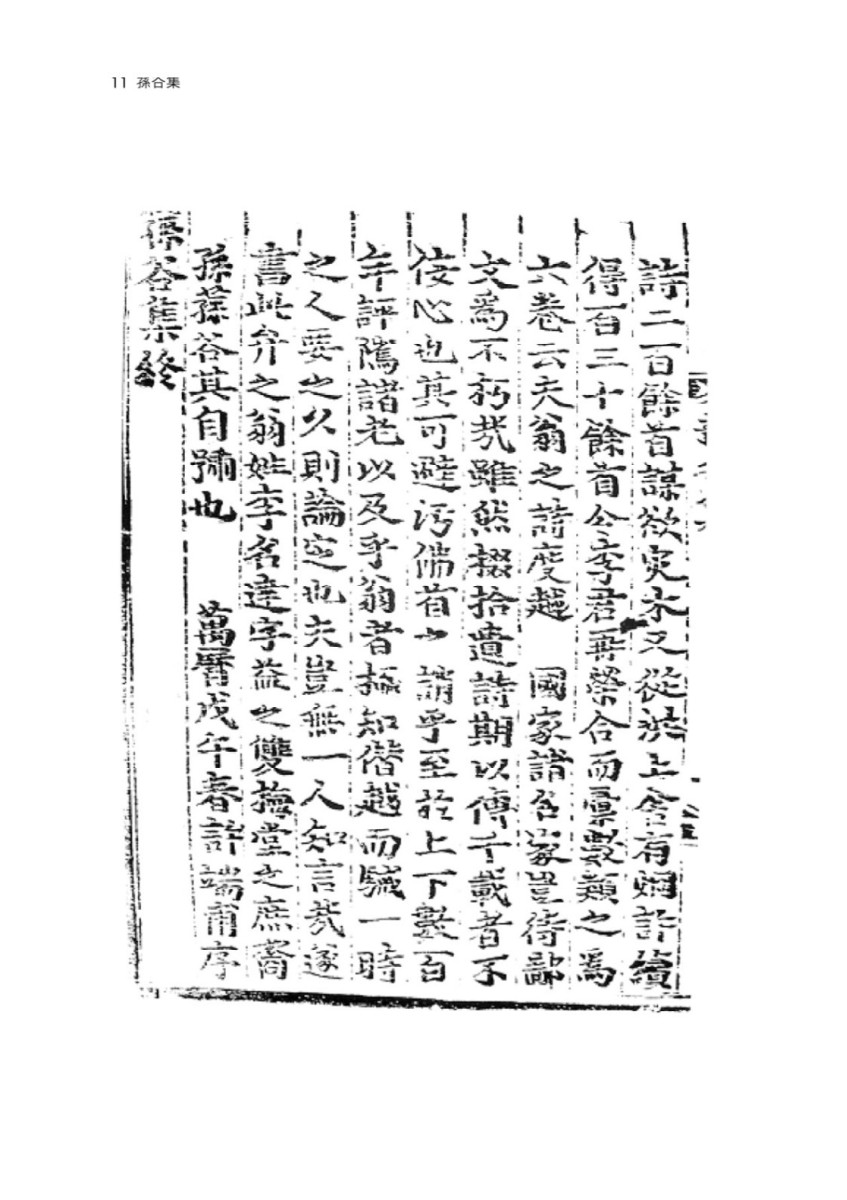 11 孫合集
詩二百餘首謀欲灾木又從洪上舍有炯許續
得一百三十餘首公李君再榮合而彙數類之爲
六卷云夫翁之詩度越 國家諸名家豈待鄙
文爲不朽哉雖然掇拾遺詩期以傳千載者不
佞心也其可避汚佛首之誚乎至於上下數百
年評隲諸老以及乎翁者極知僭越而駴一時
之人要之久則論定也夫豈無一人知言哉遂
書此弁之翁姓李名達字益之雙梅堂之庶裔
孫蓀谷其自號也 萬曆戊午春許端甫序
蓀谷集終